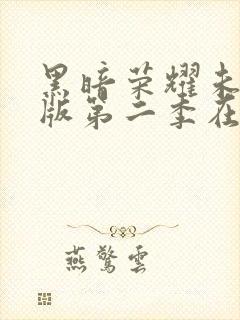 黑暗荣耀未
版第二季在
燕驚雲